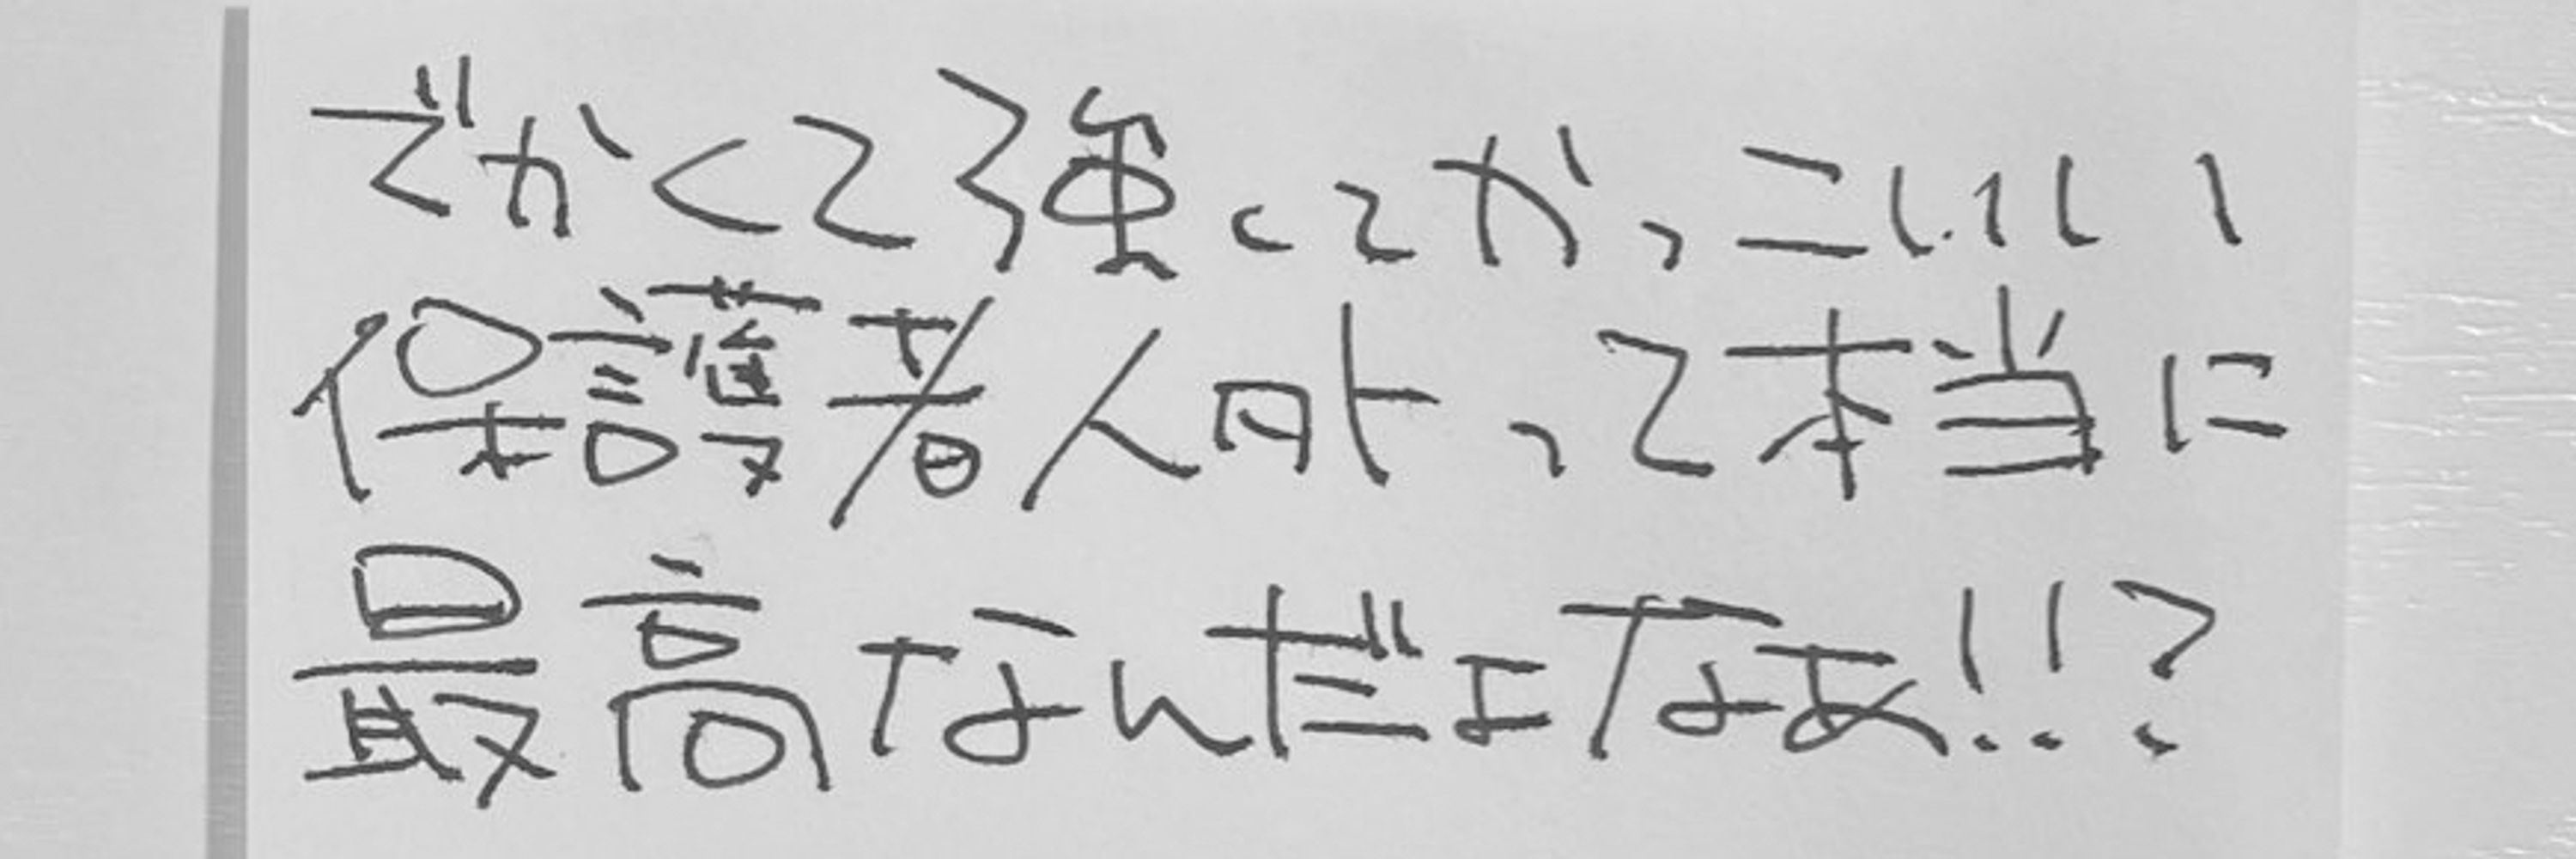 でかくて強くてかっこいい
保護者人外って本当に
最高なんだよなぁ!!?